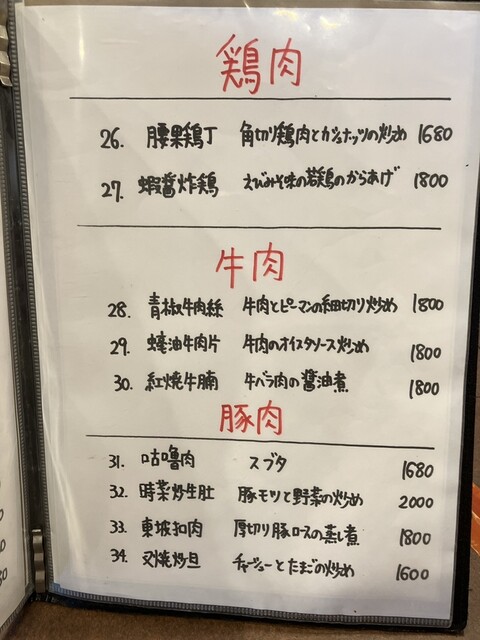 鶏肉
26. 腰果鶏丁 角切り鶏肉とカシューナッツの炒め 1680
27. 蝦醤炸鶏 えびみそ味の若鶏のからあげ 1800
牛肉
28. 青椒牛肉絲 牛肉とピーマンの細切り炒め 1800
29. 蠔油牛肉片 牛肉のオイスタソース炒め 1800
30. 紅焼牛腩 牛バラ肉の醤油煮 1800
豚肉
31. 咕嚕肉 スブタ 1680
32. 時菜炒生肚 豚モツと野菜の炒め 2000
33. 東坡扣肉 厚切り豚ロースの蒸し煮 1800
34. 叉焼炒旦 チャーシューとたまごの炒め 1600